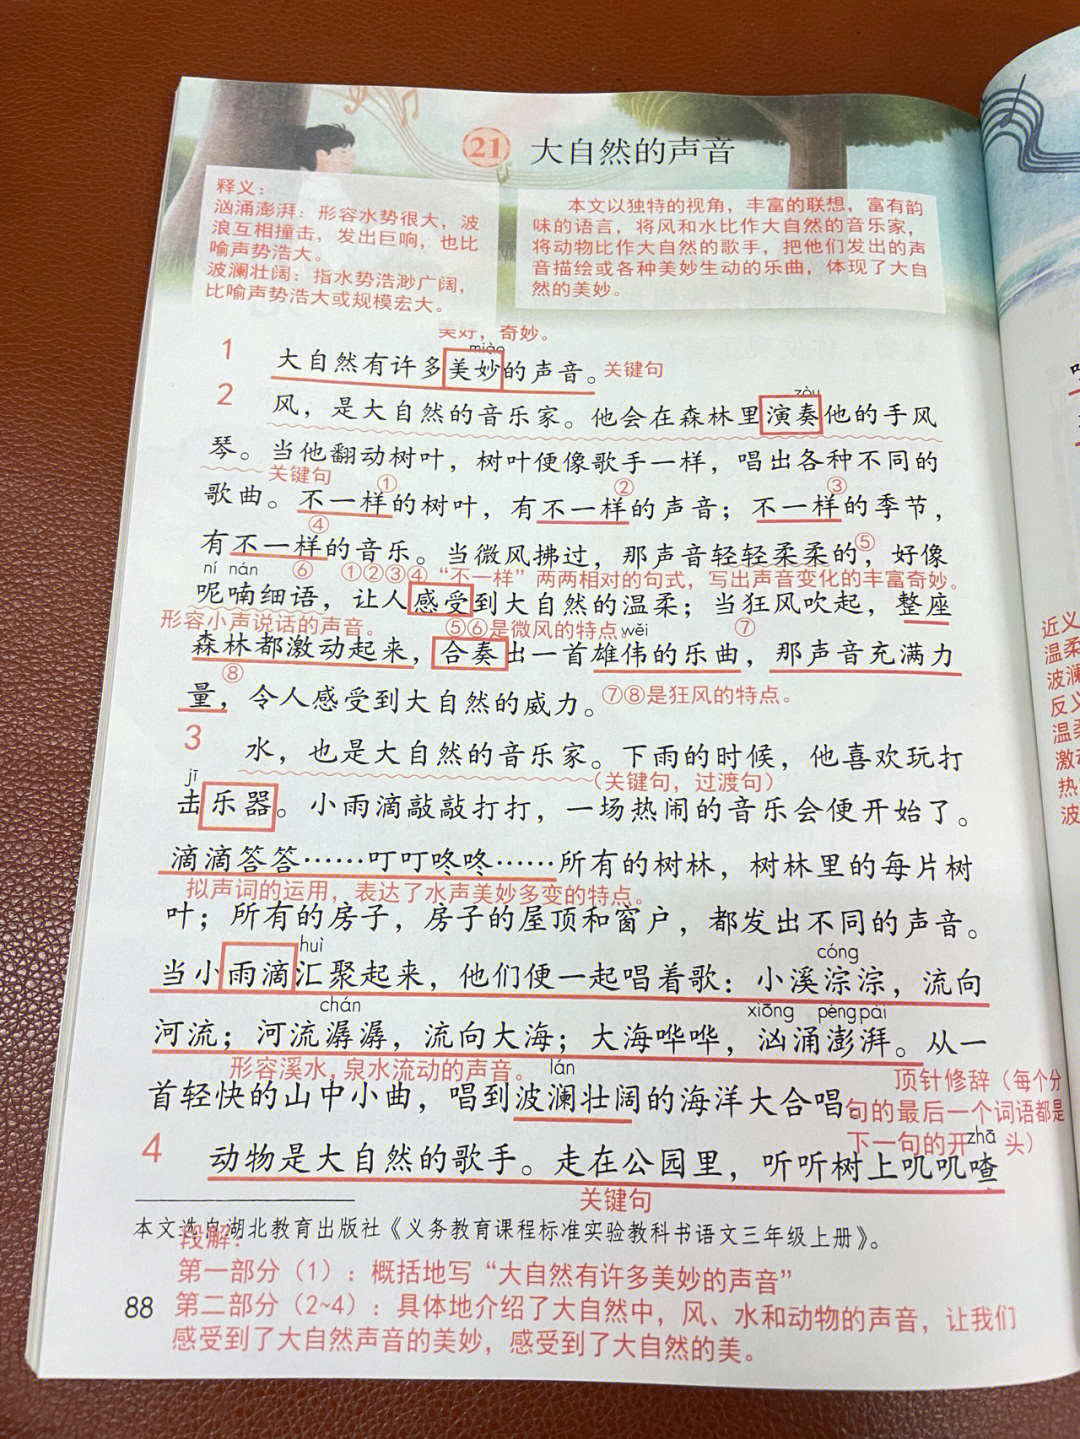 21 大自然的声音
释义：
汹涌澎湃：形容水势很大，波
浪互相撞击，发出巨响，也比
喻声势浩大。
波澜壮阔：指水势浩渺广阔，
比喻声势浩大或规模宏大。
本文以独特的视角，丰富的联想，富有韵
味的语言，将风和水比作大自然的音乐家，
将动物比作大自然的歌手，把他们发出的声
音描绘成各种美妙生动的乐曲，体现了大自
然的美妙。
美好，奇妙。
miào
1 大自然有许多美妙的声音。关键句
zòu
2 风，是大自然的音乐家。他会在森林里演奏他的手风
琴。当他翻动树叶，树叶便像歌手一样，唱出各种不同的
关键句 ① ② ③
歌曲。不一样的树叶，有不一样的声音；不一样的季节，
④
有不一样的音乐。当微风拂过，那声音轻轻柔柔的⑤，好像
ní nán ⑥ ①②③④“不一样”两两相对的句式，写出声音变化的丰富奇妙。
呢喃细语，让人感受到大自然的温柔；当狂风吹起，整座
形容小声说话的声音。 ⑤⑥是微风的特点 wěi ⑦
森林都激动起来，合奏出一首雄伟的乐曲，那声音充满力
⑧
量，令人感受到大自然的威力。⑦⑧是狂风的特点。
3 水，也是大自然的音乐家。下雨的时候，他喜欢玩打
jī （关键句，过渡句）
击乐器。小雨滴敲敲打打，一场热闹的音乐会便开始了。
滴滴答答……叮叮咚咚……所有的树林，树林里的每片树
拟声词的运用，表达了水声美妙多变的特点。
叶；所有的房子，房子的屋顶和窗户，都发出不同的声音。
huì cóng
当小雨滴汇聚起来，他们便一起唱着歌：小溪淙淙，流向
chán xiōng péng pài
河流；河流潺潺，流向大海；大海哗哗，汹涌澎湃。从一
形容溪水，泉水流动的声音。 lán 顶针修辞（每个分
首轻快的山中小曲，唱到波澜壮阔的海洋大合唱。
句的最后一个词语都是
下一句的开头）
zhā
4 动物是大自然的歌手。走在公园里，听听树上叽叽喳
关键句
本文选自湖北教育出版社《义务教育课程标准实验教科书语文三年级上册》。
段解：
第一部分（1）：概括地写“大自然有许多美妙的声音”
88 第二部分（2~4）：具体地介绍了大自然中，风、水和动物的声音，让我们
感受到了大自然声音的美妙，感受到了大自然的美。
近义
温柔
波澜
反义
温柔
激动
热
波